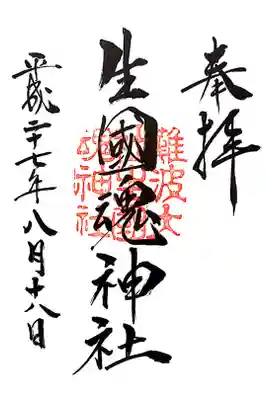 奉拝
生國魂神社
平成二十七年八月十八日
難波大
魂神社